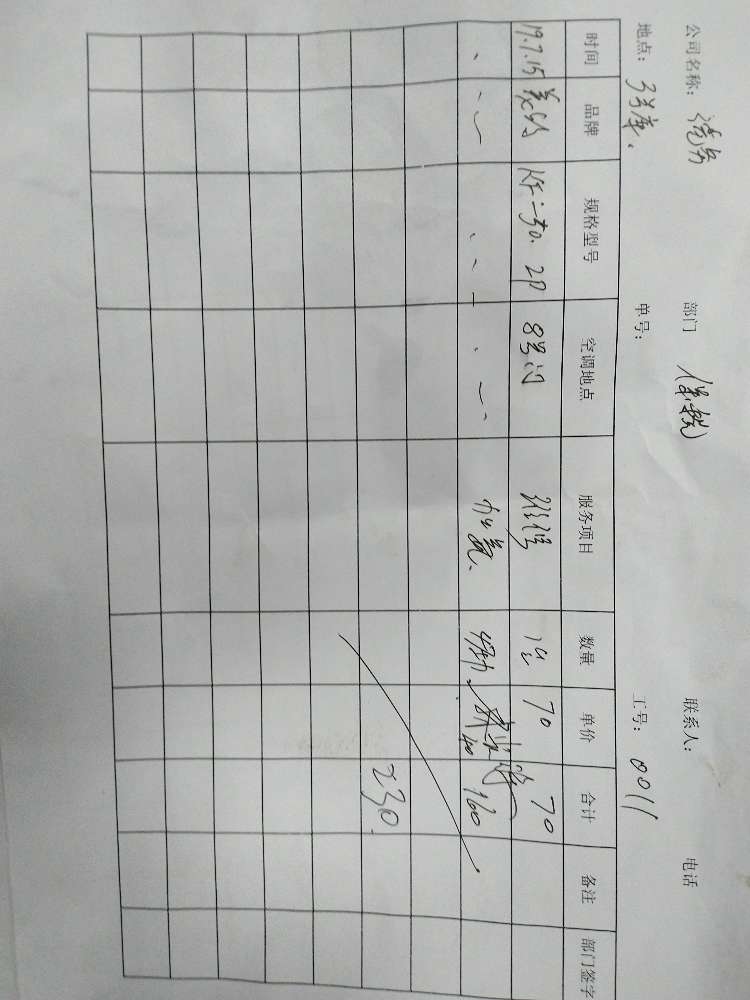 公司名称： 部门 保税 联系人： 电话
地点：3号库、 单号： 工号：0011
时间 品牌 规格型号 空调地点 服务项目 数量 单价 合计 备注 部门签字
19.7.15 美的 KF-50. 2P 8号门 维修 1台 70 70
、 、、 、、 、、 加氟、 40 160
230.